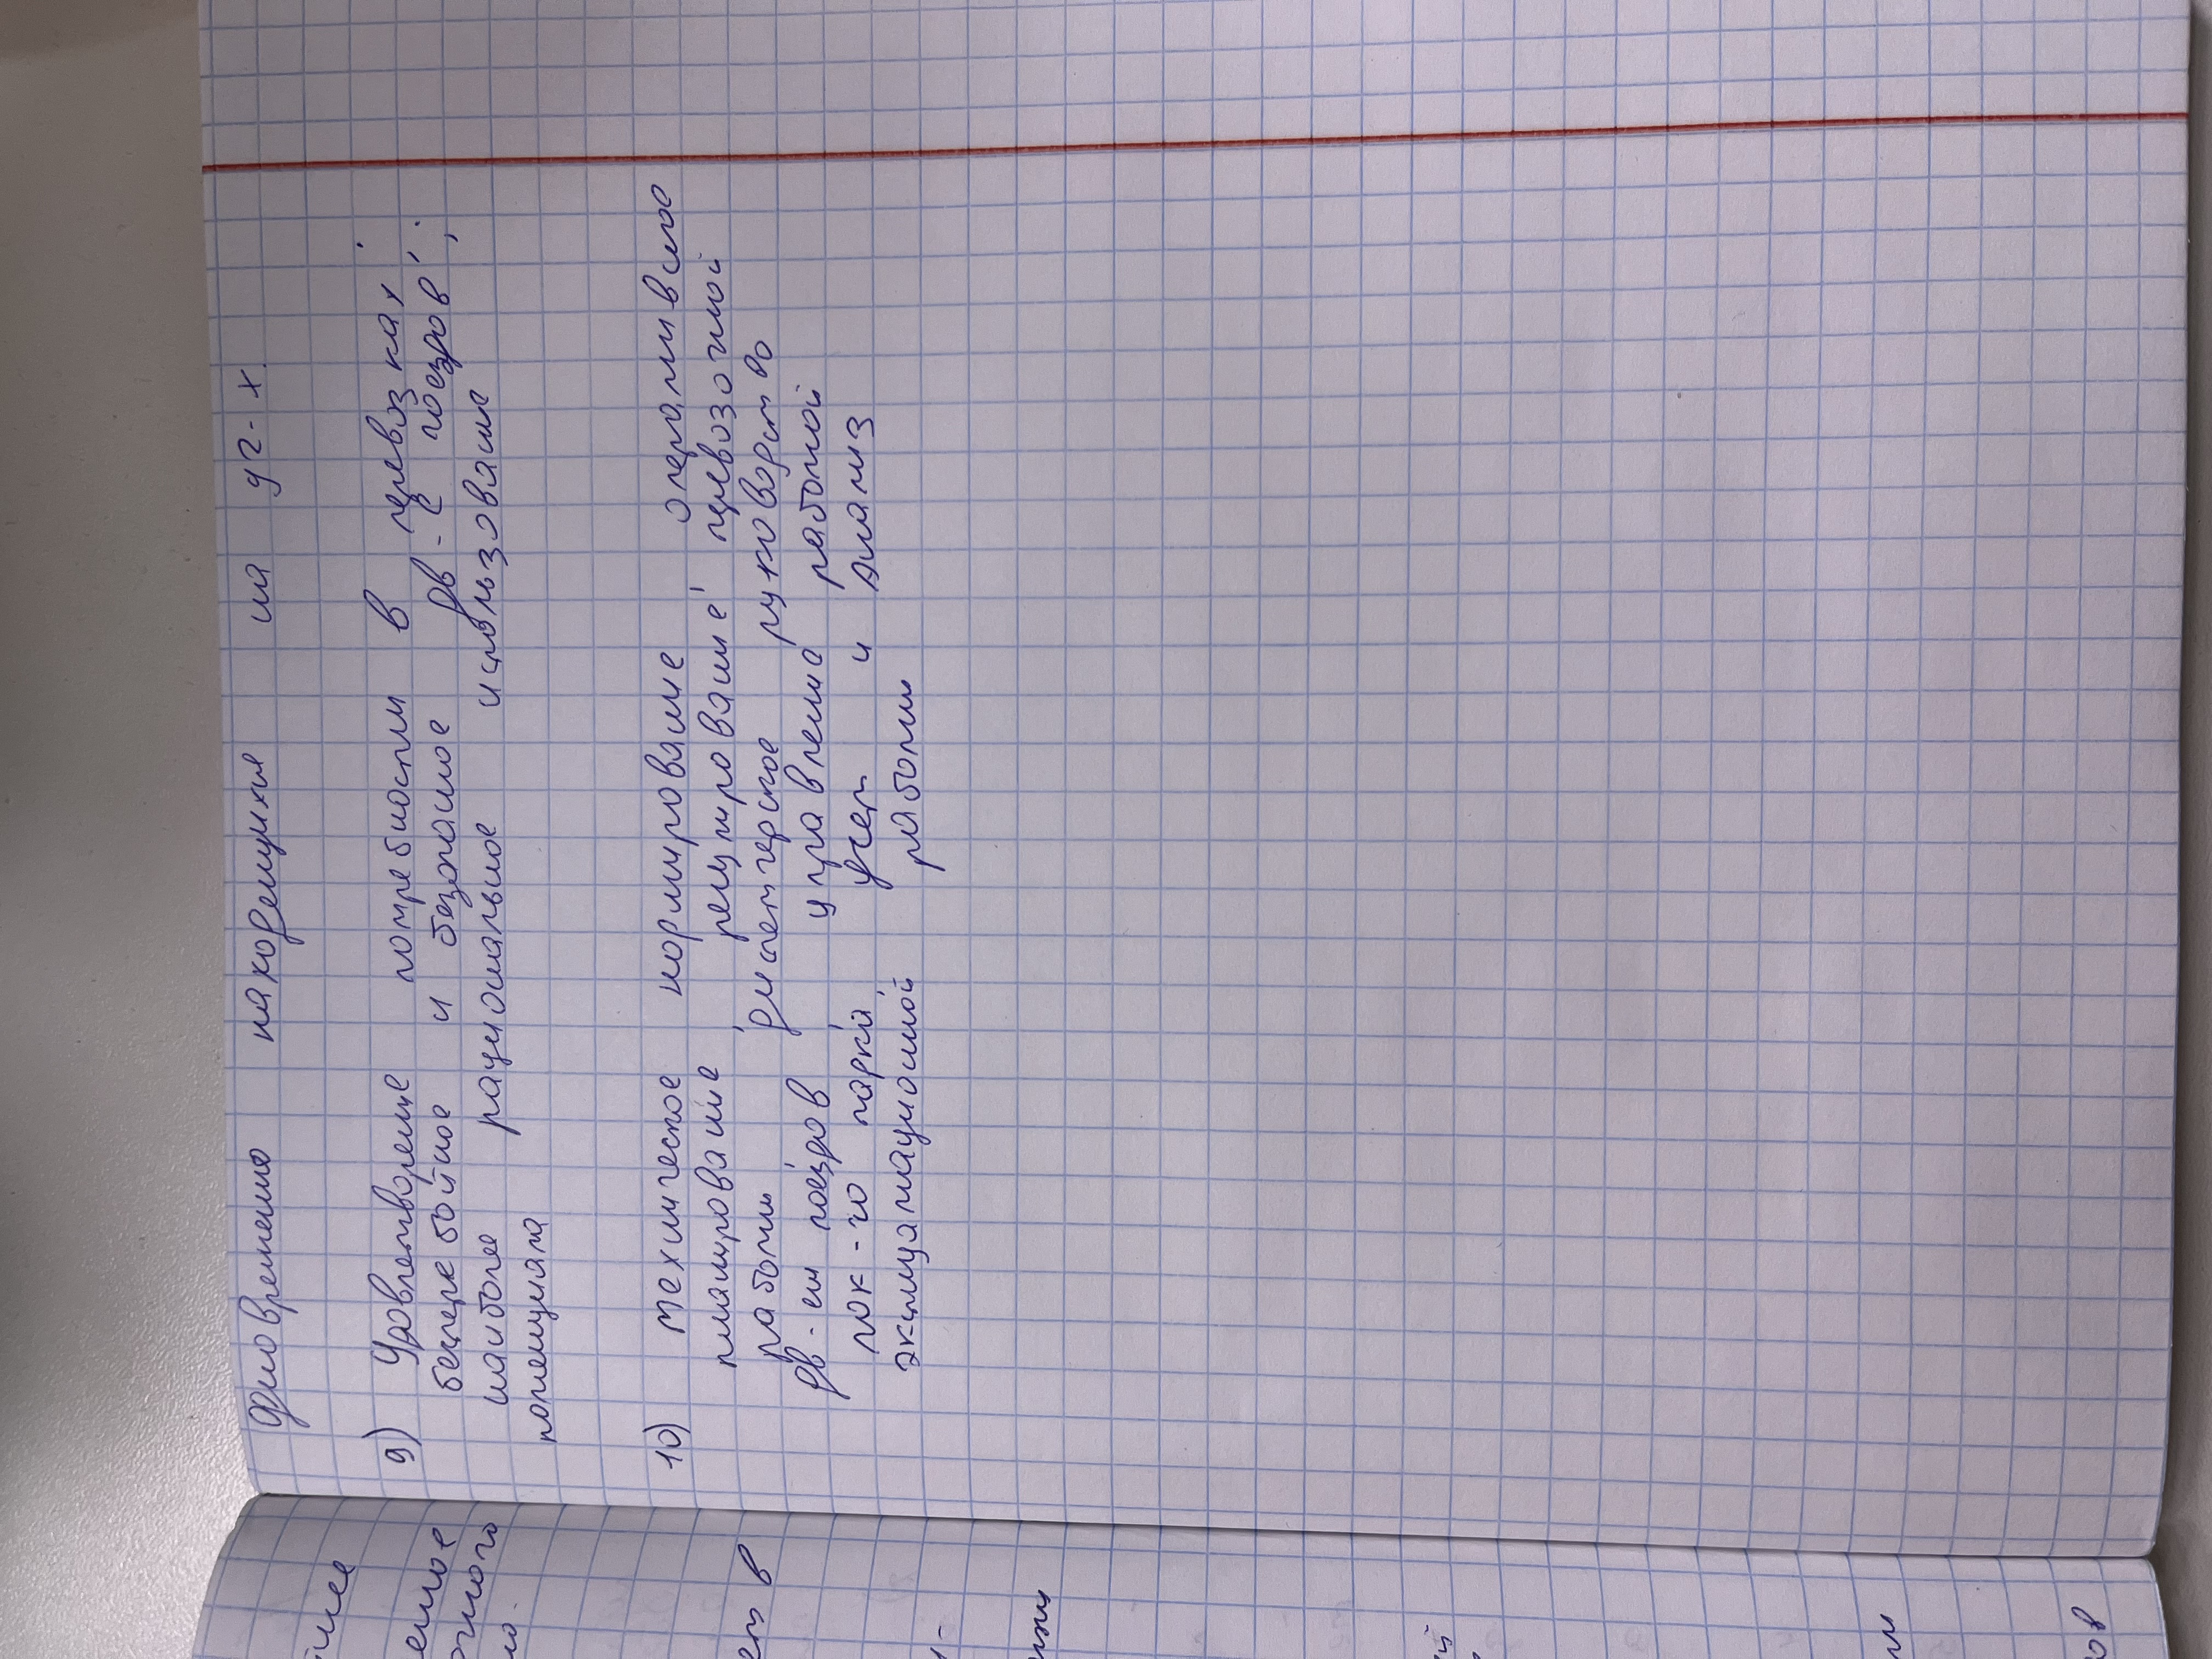 одновременно находящихся на уч-х.
9) Удовлетворение потребности в перевозках;
бесперебойное и безопасное дв-е поездов;
наиболее рациональное использование
потенциала
10) техническое нормирование; оперативное
планирование; регулирование перевозочной
работы; диспетчерское руководство
дв-ем поездов; управления работой
лок-го парка; учет и анализ
эксплуатационной работы